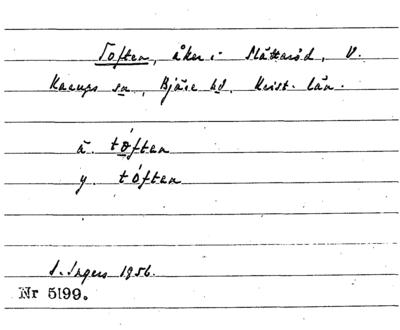 Toften, åker i Slättaröd, V.
Karups sn, Bjäre hd. Krist. län.
ä. tóften
y. tóften
S. Ingers 1956.
Nr 5199.